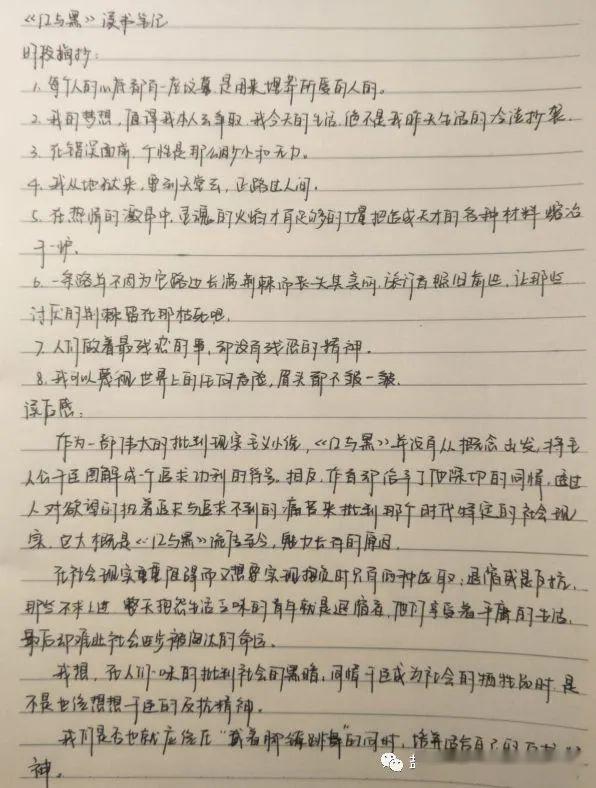 《红与黑》读书笔记
片段摘抄：
1. 每个人的心底都有一座坟墓,是用来埋葬所爱的人的。
2. 我的梦想，值得我本人去争取，我今天的生活，绝不是我昨天生活的冷淡抄袭.
3. 在错误面前，个性是那么渺小和无力。
4. 我从地狱来，要到天堂去，正路过人间.
5. 在热情的激昂中，灵魂的火焰才有足够的力量把造成天才的各种材料熔冶
于一炉.
6. 一条路并不因为它路边长满荆棘而丧失其美丽，旅行者照旧前进，让那些
讨厌的荆棘留在那枯死吧.
7. 人们做着最残忍的事，却没有残忍的精神.
8. 我可以蔑视世界上的任何危险，眉头都不皱一皱.
读后感：
作为一部伟大的批判现实主义小说，《红与黑》并没有从概念出发，将主
人公于连图解成一个追求功利的符号。相反，作者却给予了他深切的同情，透过
人对欲望的执着追求与追求不到的痛苦来批判那个时代特定的社会现
实，这大概是《红与黑》流传至今，魅力长存的原因.
在社会现实重重阻碍而又想要实现抱负时只有两种选取：退缩或是反抗.
那些不求上进 整天抱怨生活乏味的青年就是退缩者，他们享受着平庸的生活，
最后却难逃社会淘汰的命运.
我想，在人们一味的批判社会的黑暗，同情于连成为社会的牺牲品时 是
不是也该想想于连的反抗精神.
我们是否也就应该在"戴着脚镣跳舞"的同时，培养自己的
神。